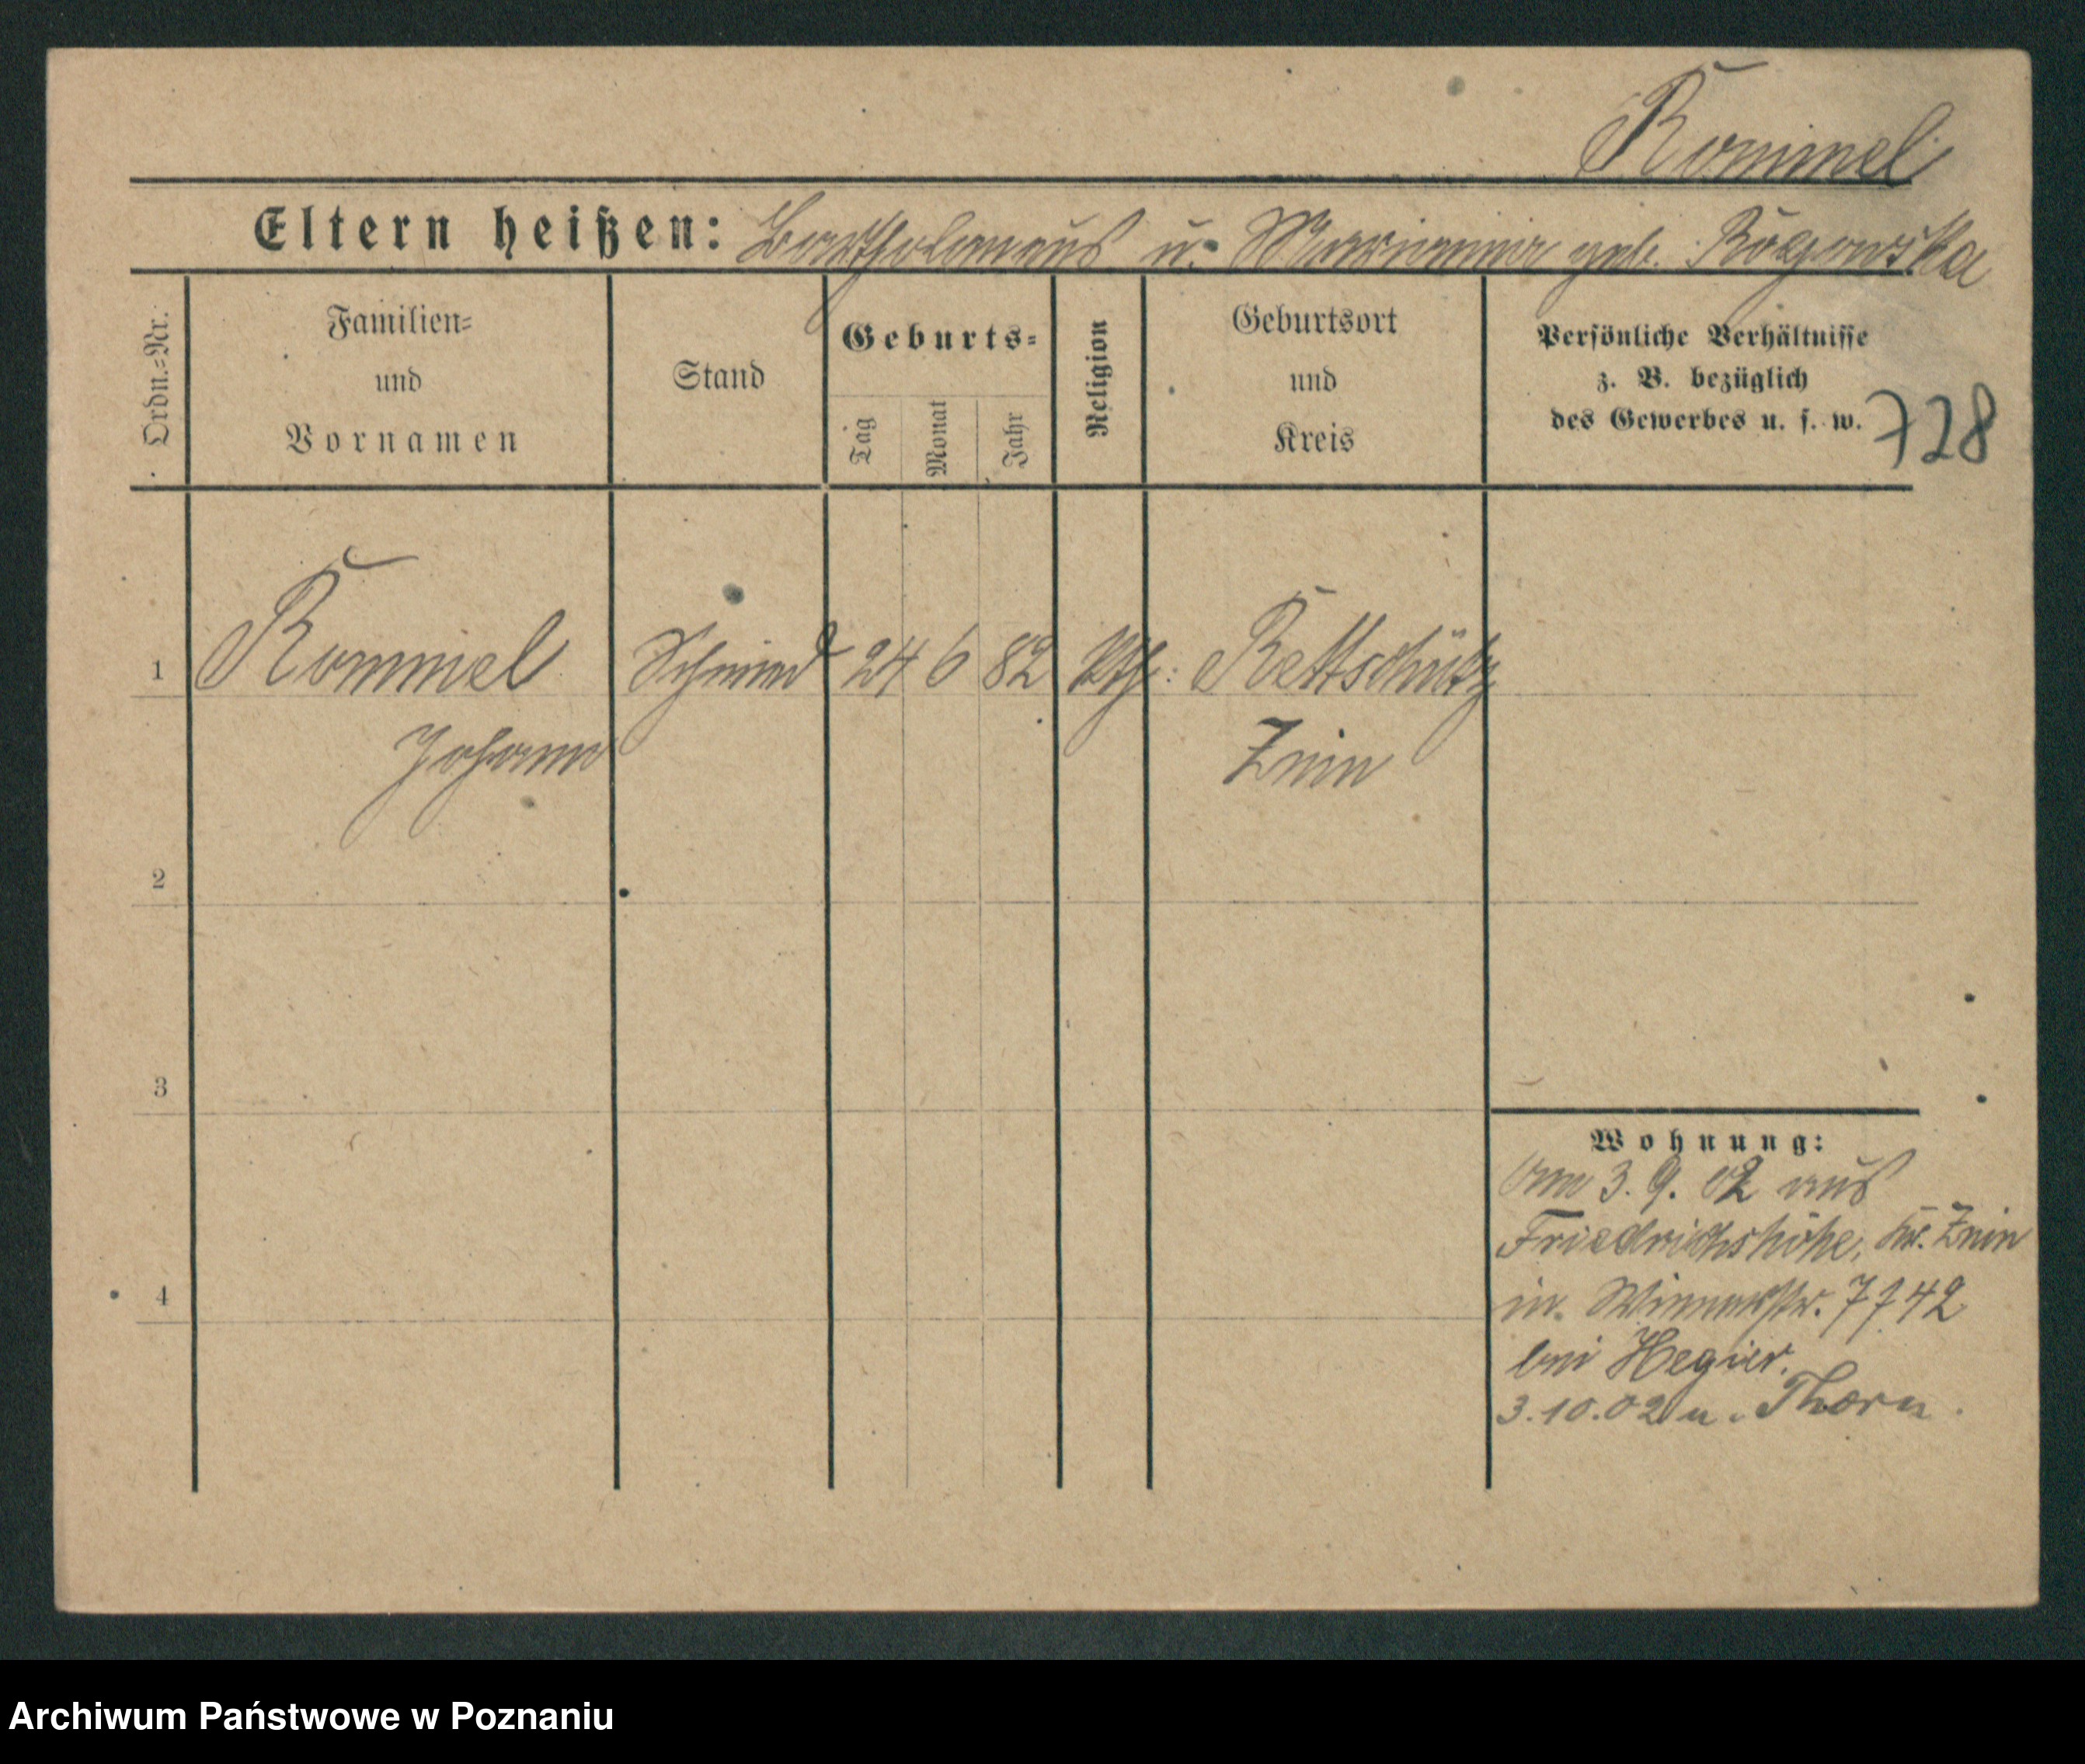 Rommel
Eltern heißen: Bartholomeus u. Marianna geb. Rogowska
Ordn.=Nr.
Familien=
und
Vornamen
Stand
Geburts=
Tag
Monat
Jahr
Religion
Geburtsort
und
Kreis
Persönliche Verhältnisse
z. B. bezüglich
des Gewerbes u. s. w.
728
1 Rommel Schmied 24 6 82 kth: Rettschütz
Johann Znin
2
3
4
Wohnung:
Am 3. 9. 02 aus
Friedrichshöhe, Kr. Znin
in 7742
bei Hegier.
3.10.02 n. Thorn.
Archiwum Państwowe w Poznaniu